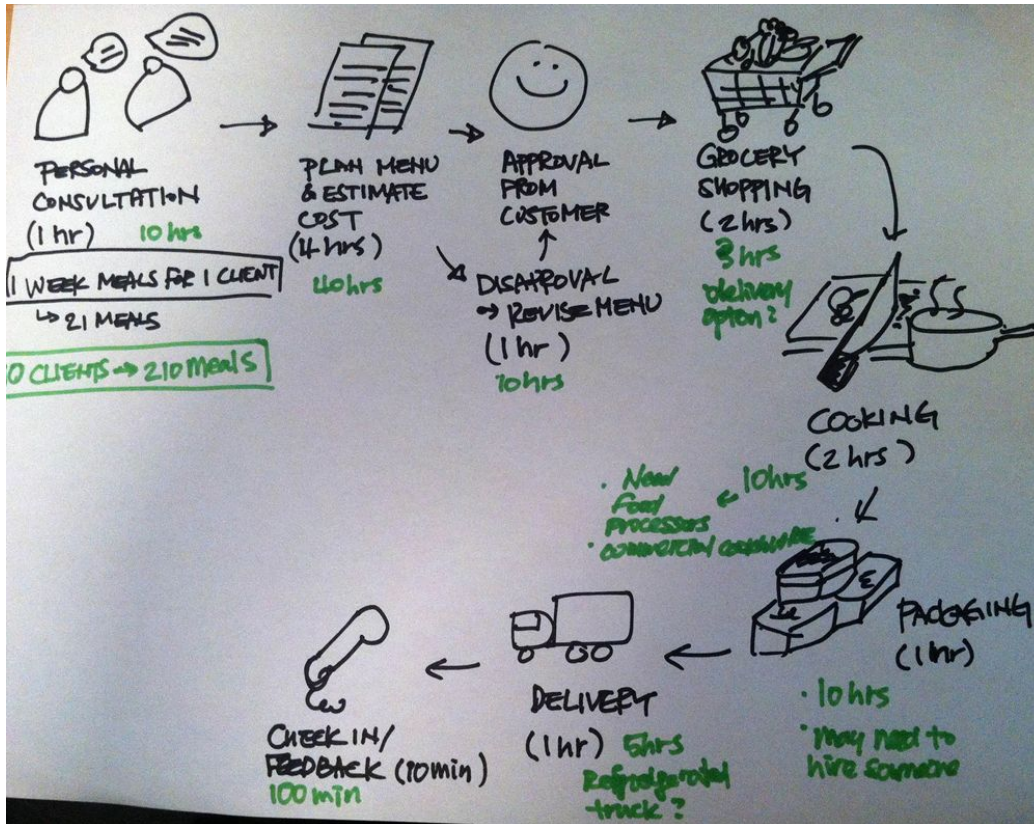 PERSONAL
CONSULTATION
(1 hr) 10 hrs
1 WEEK MEALS FOR 1 CLIENT
↳ 21 MEALS
0 CLIENTS → 210 Meals
PLAN MENU
& ESTIMATE
COST
(4 hrs)
40hrs
APPROVAL
FROM
CUSTOMER
DISAPROVAL
→ REVISE MENU
(1 hr)
10hrs
GROCERY
SHOPPING
(2 hrs)
3 hrs
Delivery
option?
COOKING
(2 hrs)
10hrs
• Need
Food
Processors
• COMMERCIAL COOKWARE
PACKAGING
(1 hr)
• 10 hrs
• May need to
hire someone
DELIVERY
(1 hr) 5hrs
Refridgerated
truck?
CHECK IN/
FEEDBACK (10 min)
100 min